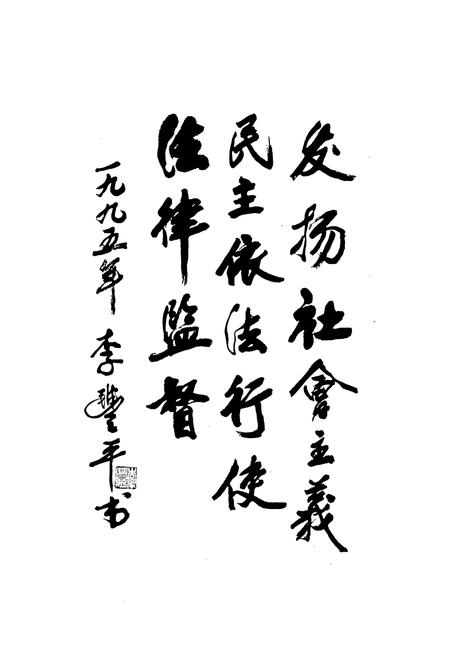 发扬社會主義
民主依法行使
法律監督
一九九五年 李豐平书